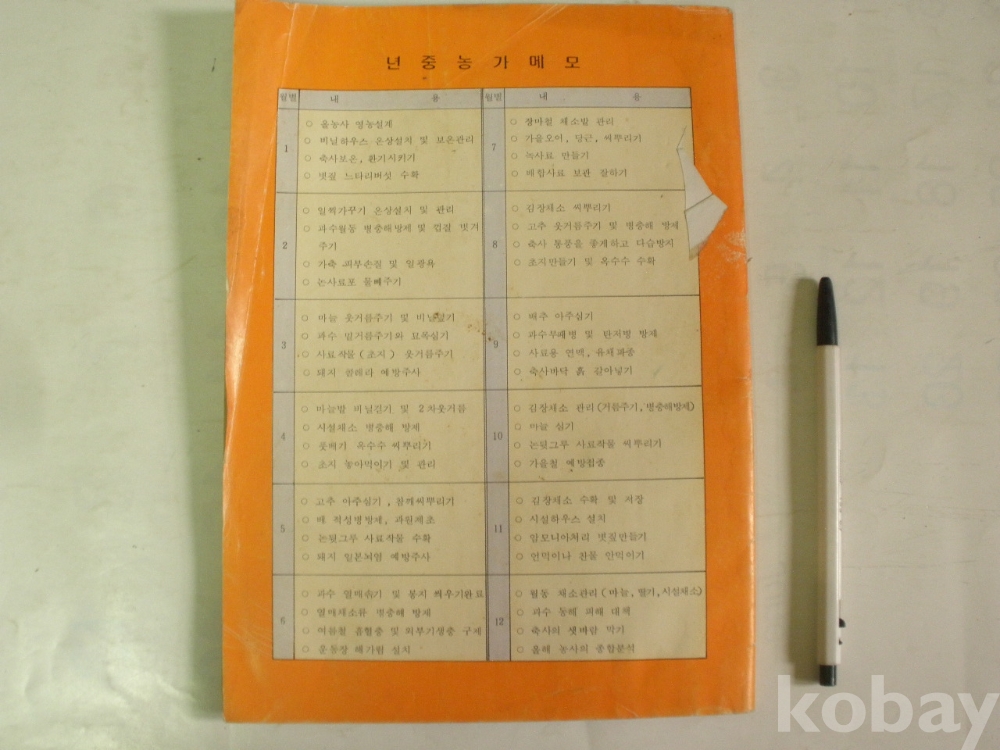 년 중 농 가 메 모
월별 내 용
1
○ 올농사 영농설계
○ 비닐하우스 온상설치 및 보온관리
○ 축사보온, 환기시키기
○ 볏짚 느타리버섯 수확
2
○ 일찍가꾸기 온상설치 및 관리
○ 과수월동 병충해방제 및 껍질 벗겨
주기
○ 가축 피부손질 및 일광욕
○ 논사료포 물빼주기
3
○ 마늘 웃거름주기 및
○ 과수 밑거름주기와 묘목심기
○ 사료작물(초지) 웃거름주기
○ 돼지 콜레라 예방주사
4
○ 마늘밭 비닐걷기 및 2차웃거름
○ 시설채소 병충해 방제
○ 풋베기 옥수수 씨뿌리기
○ 초지 놓아먹이기 및 관리
5
○ 고추 아주심기, 참깨씨뿌리기
○ 배 적성병방제, 과원제초
○ 논뒷그루 사료작물 수확
○ 돼지 일본뇌염 예방주사
6
○ 과수 열매솎기 및 봉지 씌우기완료
○ 열매채소류 병충해 방제
○ 여름철 흡혈충 및 외부기생충 구제
○ 운동장 해가림 설치
월별 내 용
7
○ 장마철 채소밭 관리
○ 가을오이, 당근, 씨뿌리기
○ 녹사료 만들기
○ 배합사료 보관 잘하기
8
○ 김장채소 씨뿌리기
○ 고추 웃거름주기 및 병충해 방제
○ 축사 통풍을 좋게하고 다습방지
○ 초지만들기 및 옥수수 수확
9
○ 배추 아주심기
○ 과수부패병 및 탄저병 방제
○ 사료용 연맥, 유채파종
○ 축사바닥 흙 갈아넣기
10
○ 김장채소 관리(거름주기, 병충해방제)
○ 마늘 심기
○ 논뒷그루 사료작물 씨뿌리기
○ 가을철 예방접종
11
○ 김장채소 수확 및 저장
○ 시설하우스 설치
○ 암모니아처리 볏짚만들기
○ 언먹이나 찬물 안먹이기
12
○ 월동 채소관리(마늘, 딸기, 시설채소)
○ 과수 동해 피해 대책
○ 축사의 샛바람 막기
○ 올해 농사의 종합분석
kobay